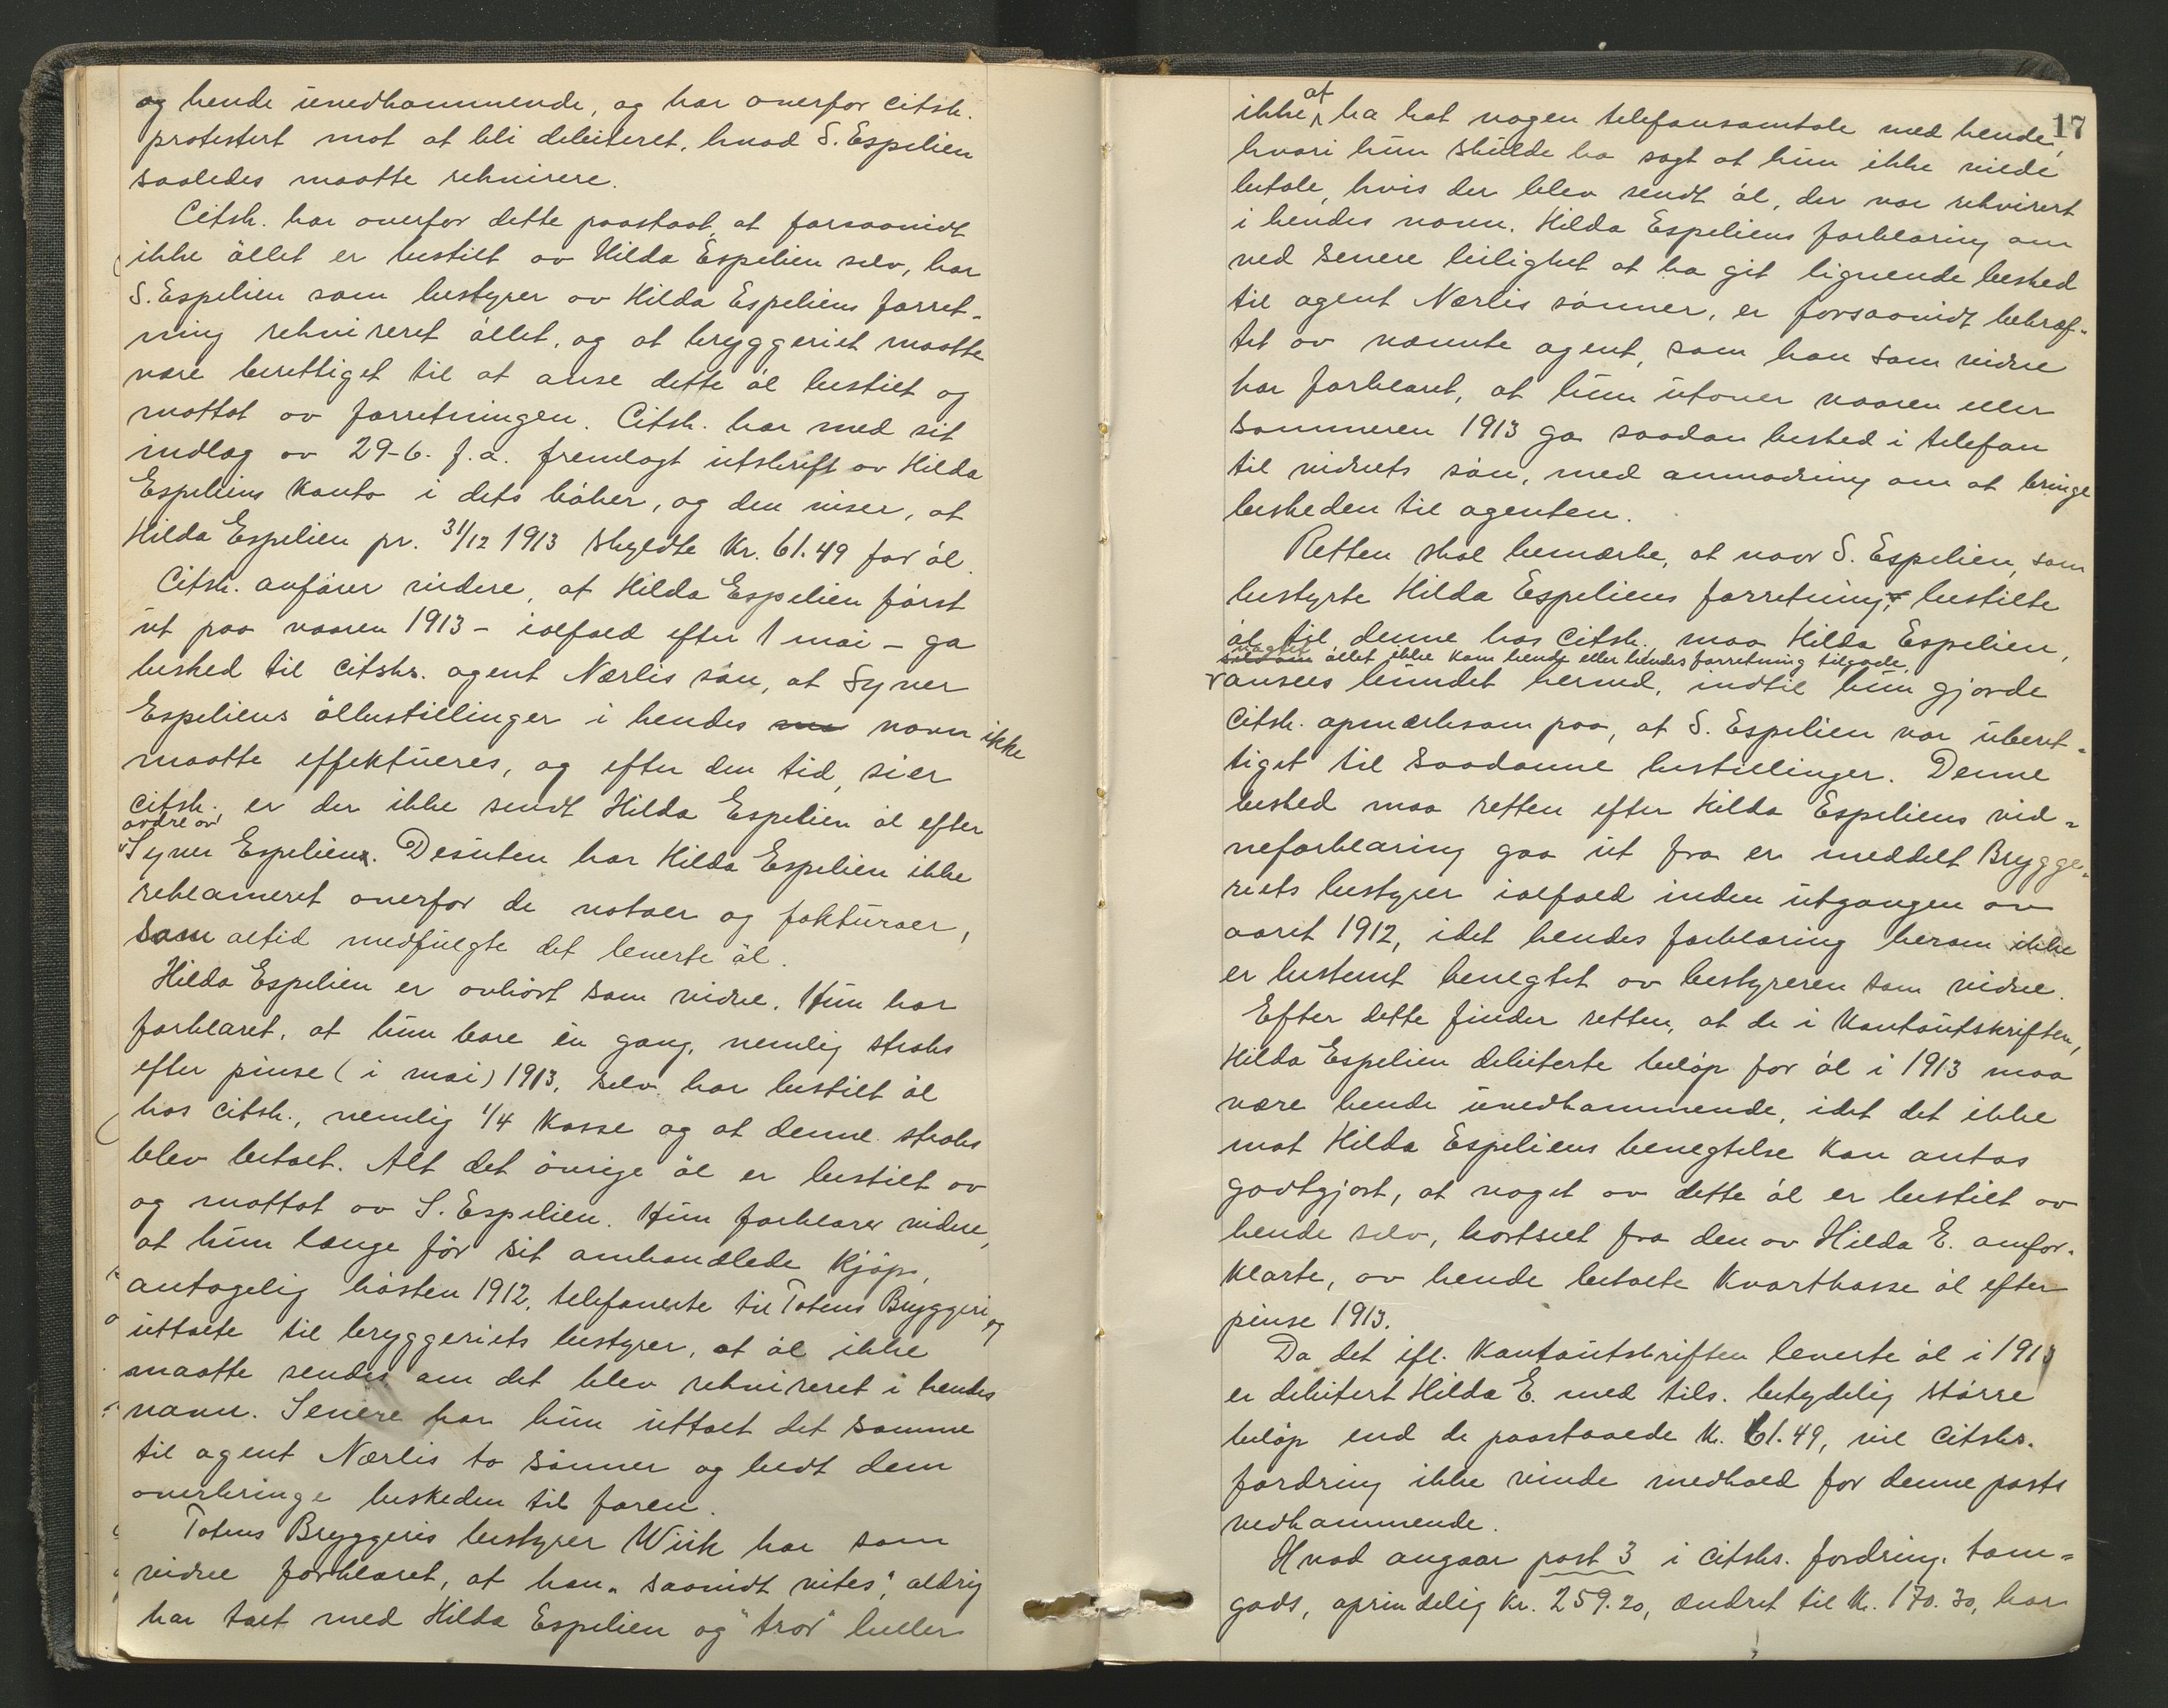 og hende uvedkommende, og har overfor citsk.
protestert mot at bli debiteret, hvad S. Espelien
saaledes maatte rekvirere.
Citsk. har overfor dette paastaat, at forsaavidt
ikke øllet er bestilt av Hilda Espelien selv, har
S. Espelien som bestyrer av Hilda Espeliens forret-
ning rekvireret øllet, og at bryggeriet maatte
være berettiget til at anse dette øl bestilt og
mottat av forretningen. Citsk. har med sit
indlæg av 29-6. f.a. fremlagt utskrift av Hilda
Espeliens Konto i dets bøker, og den viser, at
Hilda Espelien pr. 31/12 1913 skyldte Kr. 61.49 for øl.
Citsk. anfører videre, at Hilda Espelien først
ut paa vaaren 1913 - ialfald efter 1 mai - ga
besked til citsks. agent Nærlis søn, at Syver
Espeliens ølbestillinger i hendes navn ikke
maatte effektueres, og efter den tid, sier
citsk. er der ikke sendt Hilda Espelien øl efter
ordre av
Syver Espelien. Desuten har Hilda Espelien ikke
reklameret overfor de notaer og fakturaer,
som altid medfulgte det leverte øl.
Hilda Espelien er avhørt som vidne. Hun har
forklaret, at hun bare én gang, nemlig straks
efter pinse (i mai) 1913, selv har bestilt øl
hos citsk., nemlig 1/4 Kasse og at denne straks
blev betalt. Alt det øvrige øl er bestilt av
og mottat av S. Espelien. Hun forklarer videre,
at hun længe før sit omhandlede Kjøp,
antagelig høsten 1912, telefonerte til Totens Bryggeri og
uttalte til bryggeriets bestyrer, at øl ikke
maatte sendes om det blev rekvireret i hendes
navn. Senere har hun uttalt det samme
til agent Nærlis to sønner og bedt dem
overbringe beskeden til faren.
Totens Bryggeris bestyrer Wiik har som
vidne forklaret, at han „saavidt vites", aldrig
har talt med Hilda Espelien og "tror" heller
17
ikke at ha hat nogen telefonsamtale med hende,
hvori hun skulde ha sagt at hun ikke vilde
betale, hvis der blev sendt øl, der var rekvirert
i hendes navn. Hilda Espeliens forklaring om
ved senere leilighet at ha git lignende besked
til agent Nærlis sønner, er forsaavidt bekræf-
tet av nævnte agent, som han som vidne
har forklaret, at hun utover vaaren eller
sommeren 1913 ga saadan besked i telefon
til vidnets søn, med anmodning om at bringe
beskeden til agenten.
Retten skal bemærke, at naar S. Espelien, som
bestyrte Hilda Espeliens forretning, bestilte
øl til denne hos citsk. maa Hilda Espelien,
uagtet øllet ikke kom hende eller hendes forretning tilgode,
ansees bundet herved, indtil hun gjorde
citsk. opmærksom paa, at S. Espelien var uberet-
tiget til saadanne bestillinger. Denne
besked maa retten efter Hilda Espeliens vid-
neforklaring gaa ut fra er meddelt Brygge-
riets bestyrer ialfald inden utgangen av
aaret 1912, idet hendes forklaring herom ikke
er bestemt benegtet av bestyreren som vidne.
Efter dette finder retten, at de i Kontoutskriften,
Hilda Espelien debiterte beløp for øl i 1913 maa
være hende uvedkommende, idet det ikke
mot Hilda Espeliens benegtelse kan antas
godtgjort, at noget av dette øl er bestilt av
hende selv, bortset fra den av Hilda E. omfor-
klarte, av hende betalte Kvartkasse øl efter
pinse 1913.
Da det ifl. Kontoutskriften leverte øl i 1913
er debitert Hilda E. med tils. betydelig større
beløp end de paastaaede Kr. 61.49, vil citsks.
fordring ikke vinde medhold for denne posts
vedkommende.
Hvad angaar post 3 i citsks. fordring, tom-
gods, oprindelig Kr. 259.20, ændret til Kr. 170.30, har